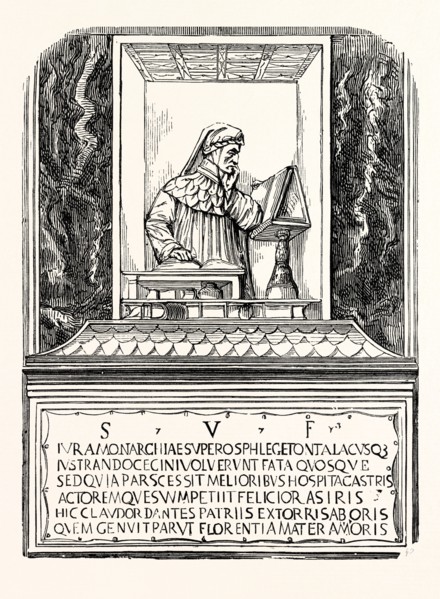 S V F
IVRA MONARCHIAE SVPEROS PHLEGETONTA LACVSQ3
IVSTRANDO CECINI VOLVERVNT FATA QVOSQVE
SED QVIA PARS CESSIT MELIORIBVS HOSPITA CASTRIS
ACTOREMQVE SVVM PETIIT FELICIOR ASIRIS
HIC CLAVDOR DANTES PATRIIS EXTORRIS ABORIS
QVEM GENVIT PARVT FLORENTIA MATER AMORIS